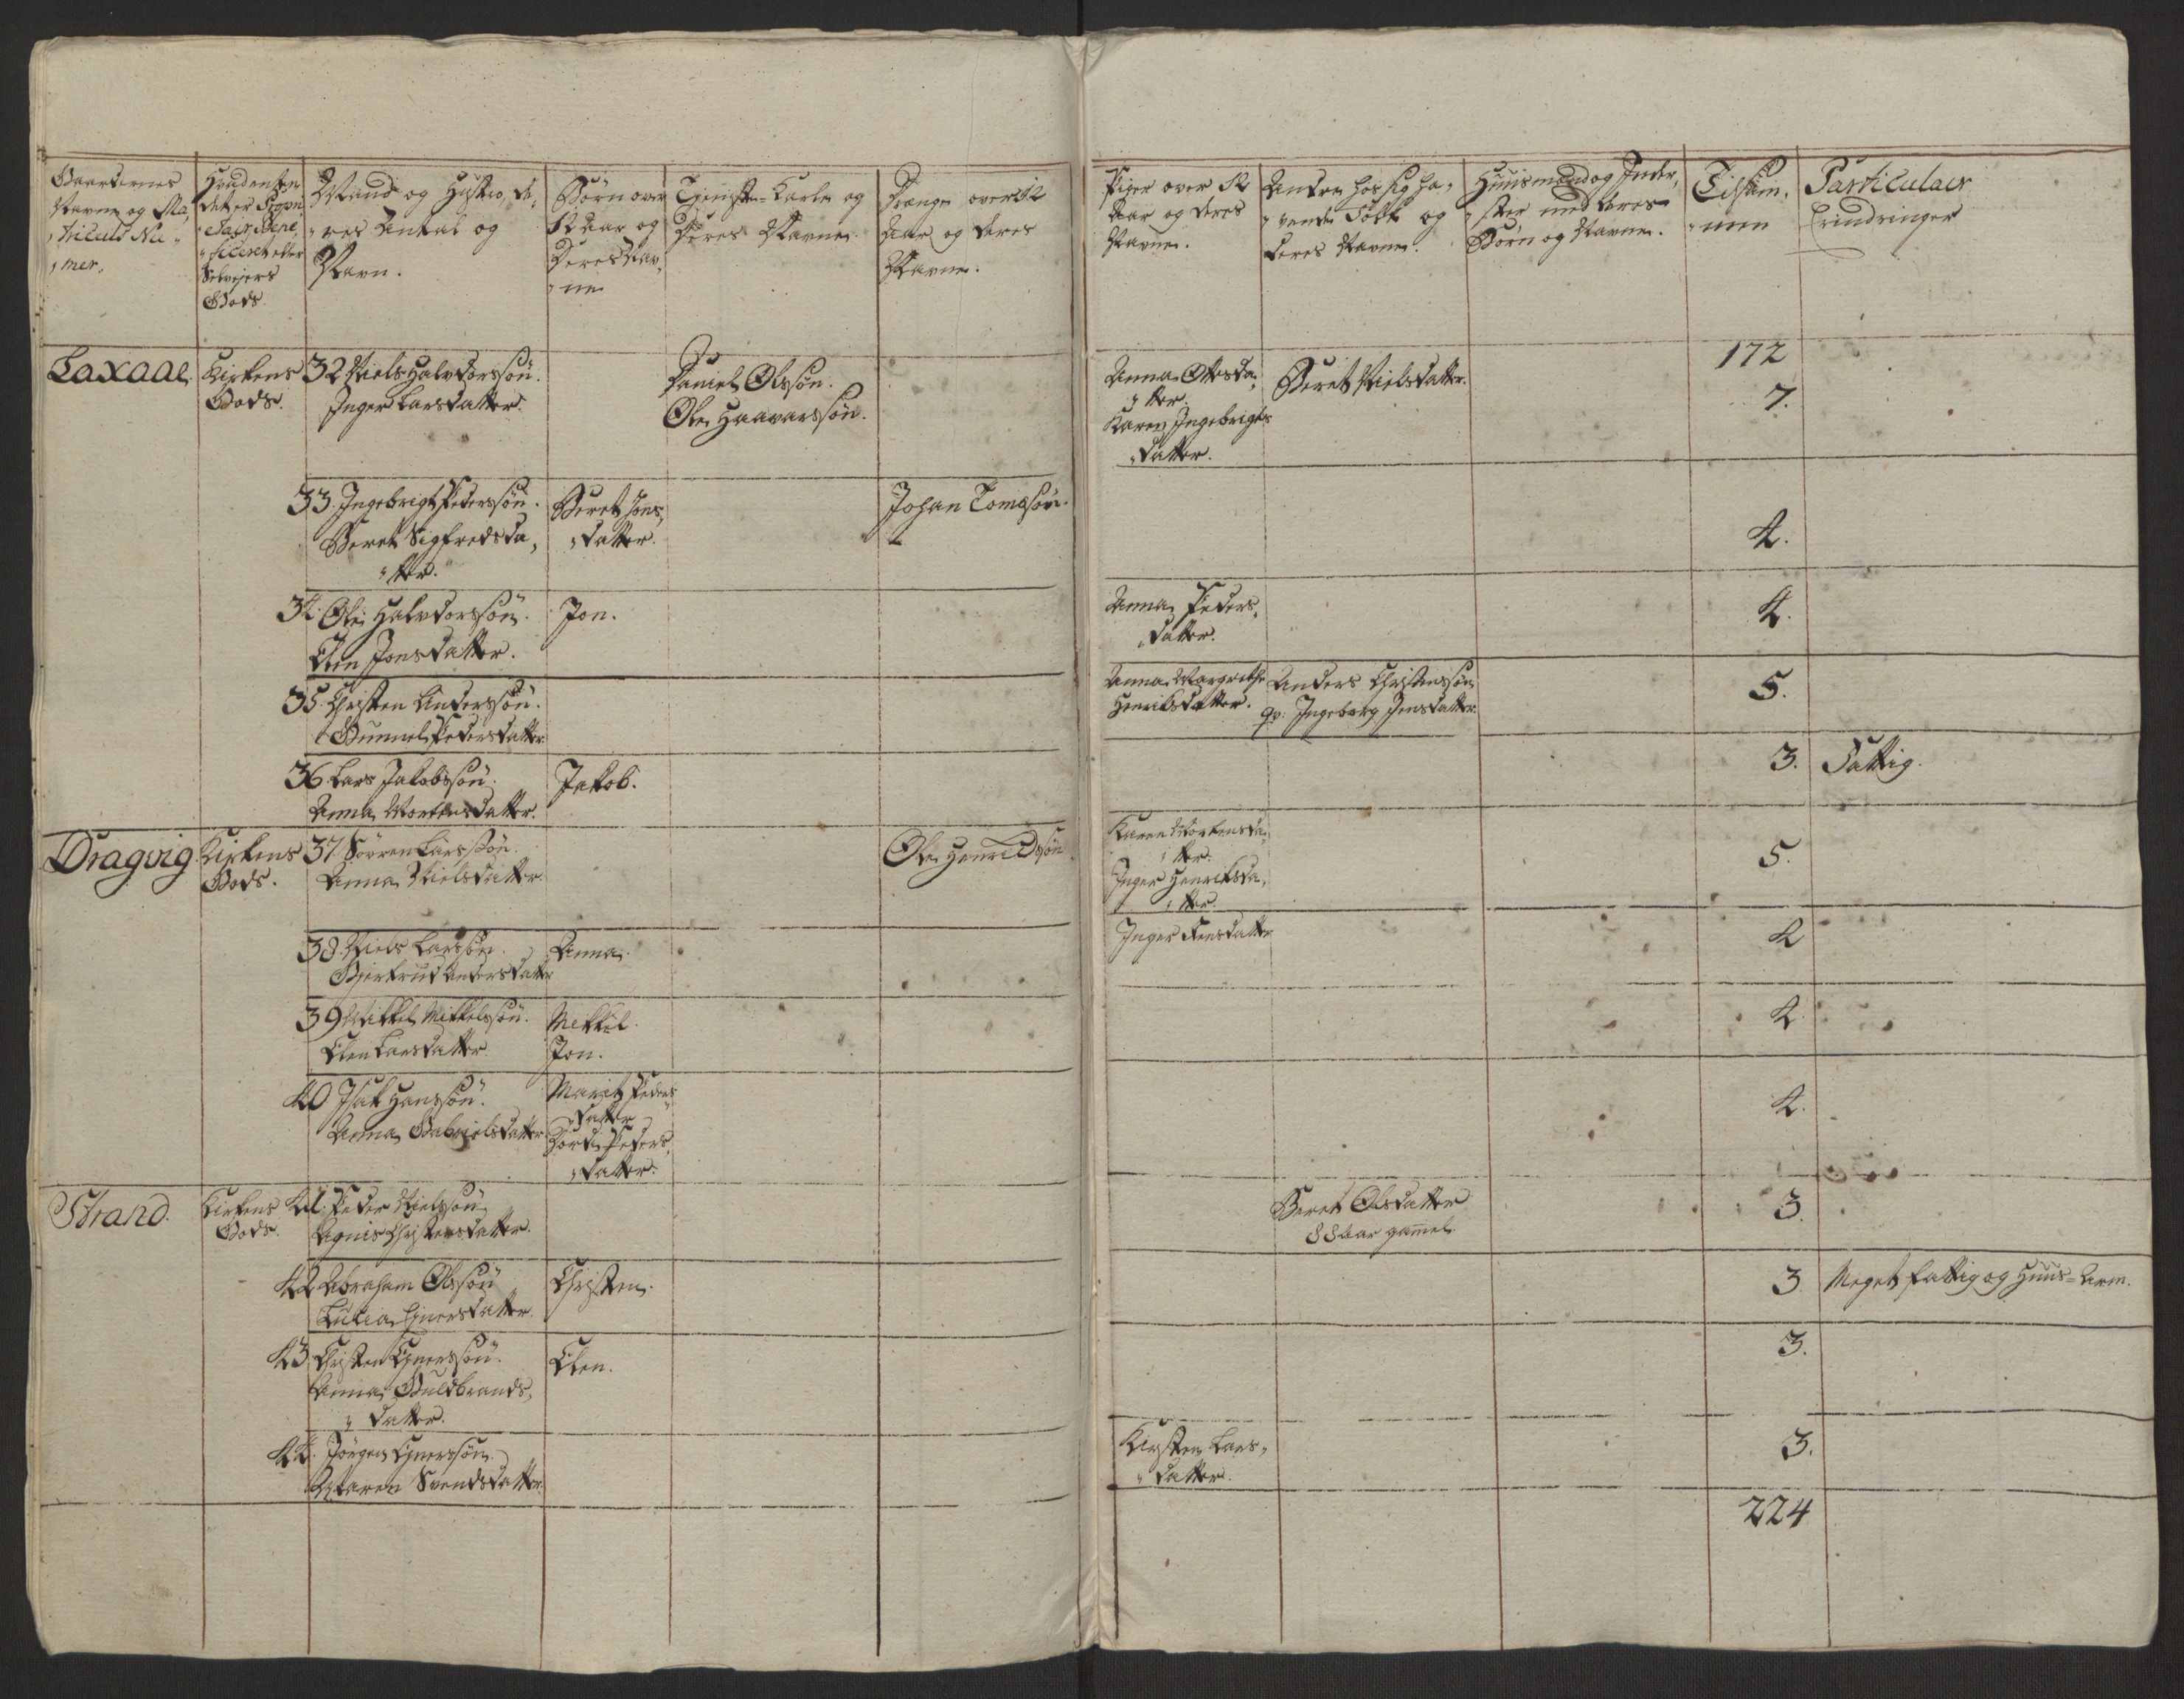 Gaardernes
Navne og Ma,
,triculs Nu,
,mer.
Hvad enten
det er Proprie
Benef
,ficeret eller
Selvejers
Gods.
Mand og Hustro, de,
,res Antal og
Navn.
Børn over
12 Aar og
Deres Nav,
,ne
Tjeniste-Karle og
Deres Navne.
Drenge over 12
Aar og deres
Navne.
Piger over 12
Aar og deres
Navne.
Anden hos sig ha,
,vende Folk og
deres Navne.
Huusmænd og Inder,
,ster med deres
Børn og Navne.
Tilsam,
,men
Particulair
Erindringer
172
Laxaae.
Kirkens
Gods.
32 Niels Halvdorssøn.
Inger Larsdatter.
Daniel Olssøn.
Ole Haavarssøn.
Anna Ottesda,
,tter.
Karen Ingebrigts
,datter.
Beret Nielsdatter.
7.
33. Ingebrigt Pederssøn.
Beret Sigfredsda,
,tter.
Beret Jons,
,datter.
Johan Tomessøn.
4.
34. Ole Halvdorssøn.
Elen Jonsdatter.
Jon.
Anna Peders,
,datter.
4.
35. Christen Anderssøn.
Gunnel Pedersdatter.
Anna Margrethe
Henriksdatter.
Anders Christenssøn
qv: Ingeborg Jensdatter.
5.
36. Lars Jakobssøn.
Anna Mortensdatter.
Jakob.
3.
Fattig.
Dragvig.
Kirkens
Gods.
37 Søvren Larssøn.
Anna Nielsdatter.
Ole Henrichssøn
Karen Mortensda,
,tter.
Inger Henriksda,
,tter.
5.
38. Niels Larssøn.
Gjertrud Andersdatter
Anna.
Inger Jensdatter
4
39 Mikkel Mikkelssøn.
Elen Larsdatter.
Mikkel.
Jon.
4.
40 Isak Hanssøn.
Anna Gabrielsdatter.
Marit Peders
,datter
Dorte Peders,
,datter.
4.
Strand.
Kirkens
Gods.
41. Peder Nielssøn
Agnis Christensdatter.
Beret Olsdatter
88 Aar gammel.
3.
42 Abraham Olssøn
Lucia Ejnersdatter.
Christen.
3
Meget fattig og Huus-Arm.
43. Christen Ejnerssøn.
Anna Guldbrands,
,datter.
Elen.
3.
44. Jørgen Ejnerssøn.
Maren Svendsdatter.
Kirsten Lars,
,datter.
3.
224